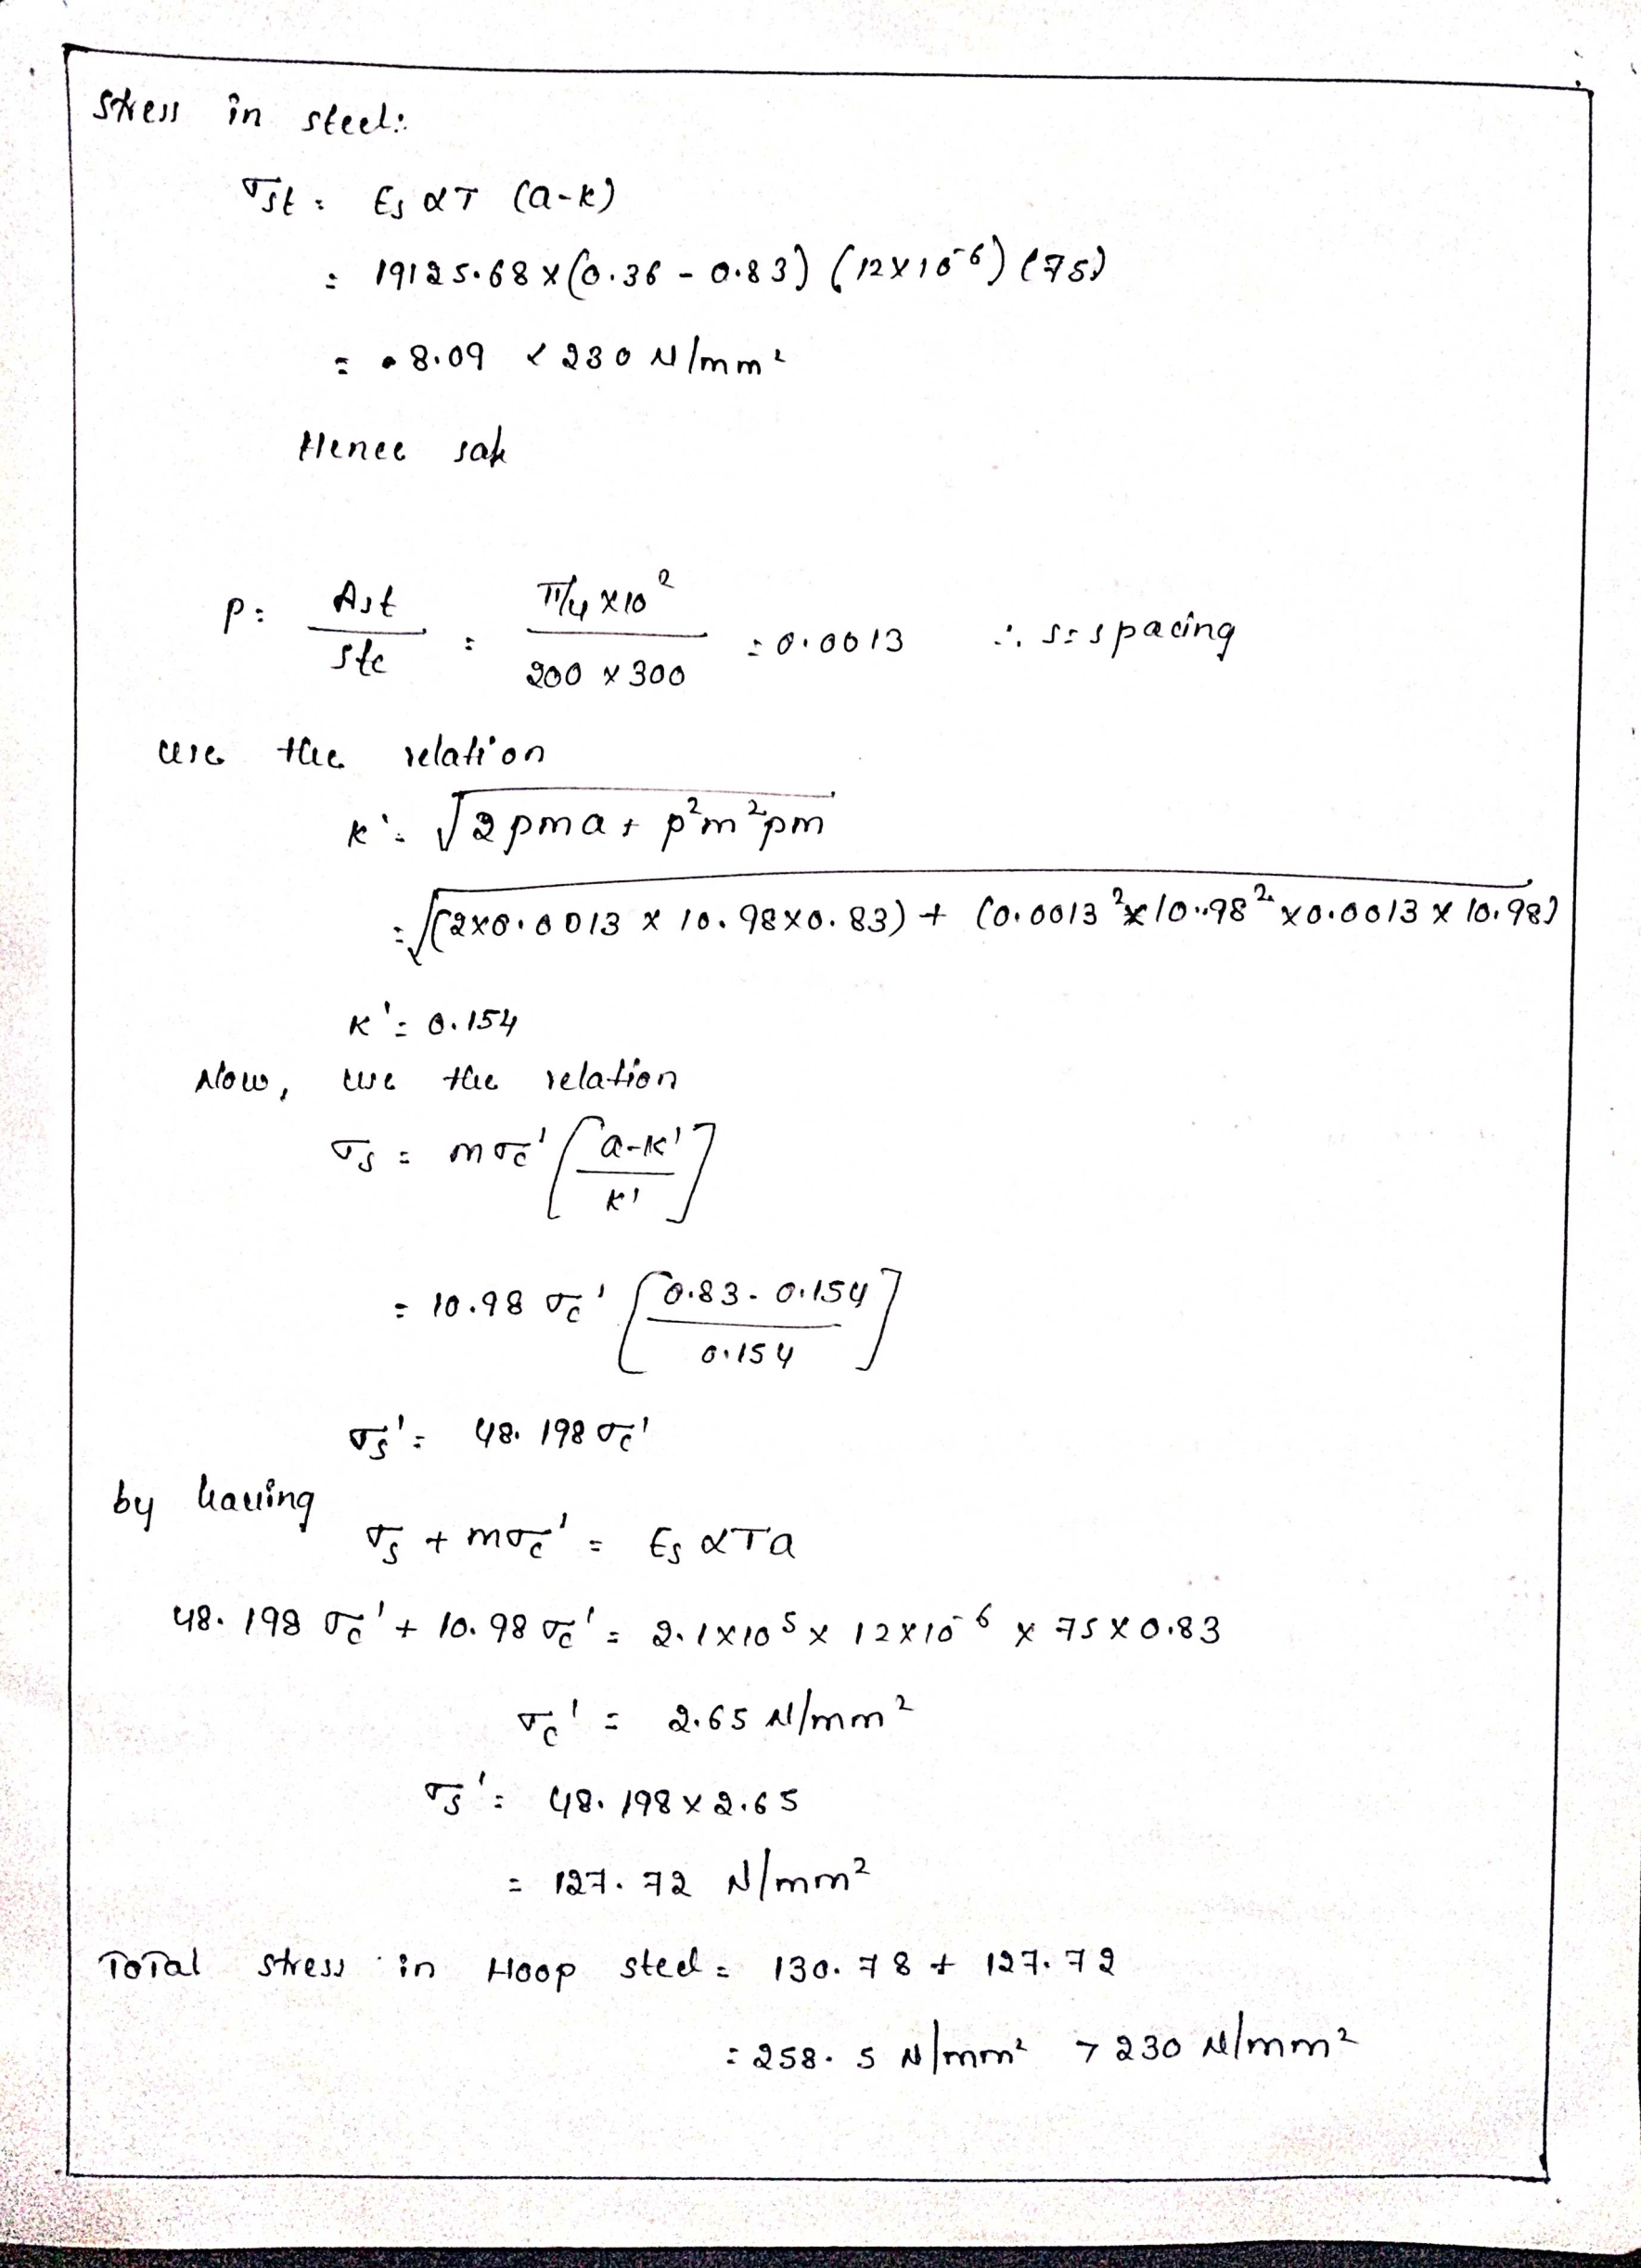 Stress in steel:
σst = Es αT (a-k)
= 19125.68 x (0.36 - 0.83) (12x10^-6) (75)
= 8.09 < 230 N/mm²
Hence safe
P = Ast / stc = π/4 x 10² / 200 x 300 = 0.0013 ∴ s = spacing
use the relation
k' = √(2pma + p²m²pm)
= √((2x0.0013 x 10.98x0.83) + (0.0013² x 10.98² x 0.0013 x 10.98))
k' = 0.154
Now, use the relation
σs = mσc' [a-k' / k']
= 10.98 σc' [0.83 - 0.154 / 0.154]
σs' = 48.198 σc'
by having
σs + mσc' = Es αTa
48.198 σc' + 10.98 σc' = 2.1x10^5 x 12x10^-6 x 75 x 0.83
σc' = 2.65 N/mm²
σs' = 48.198 x 2.65
= 127.72 N/mm²
Total stress in Hoop steel = 130.78 + 127.72
= 258.5 N/mm² > 230 N/mm²